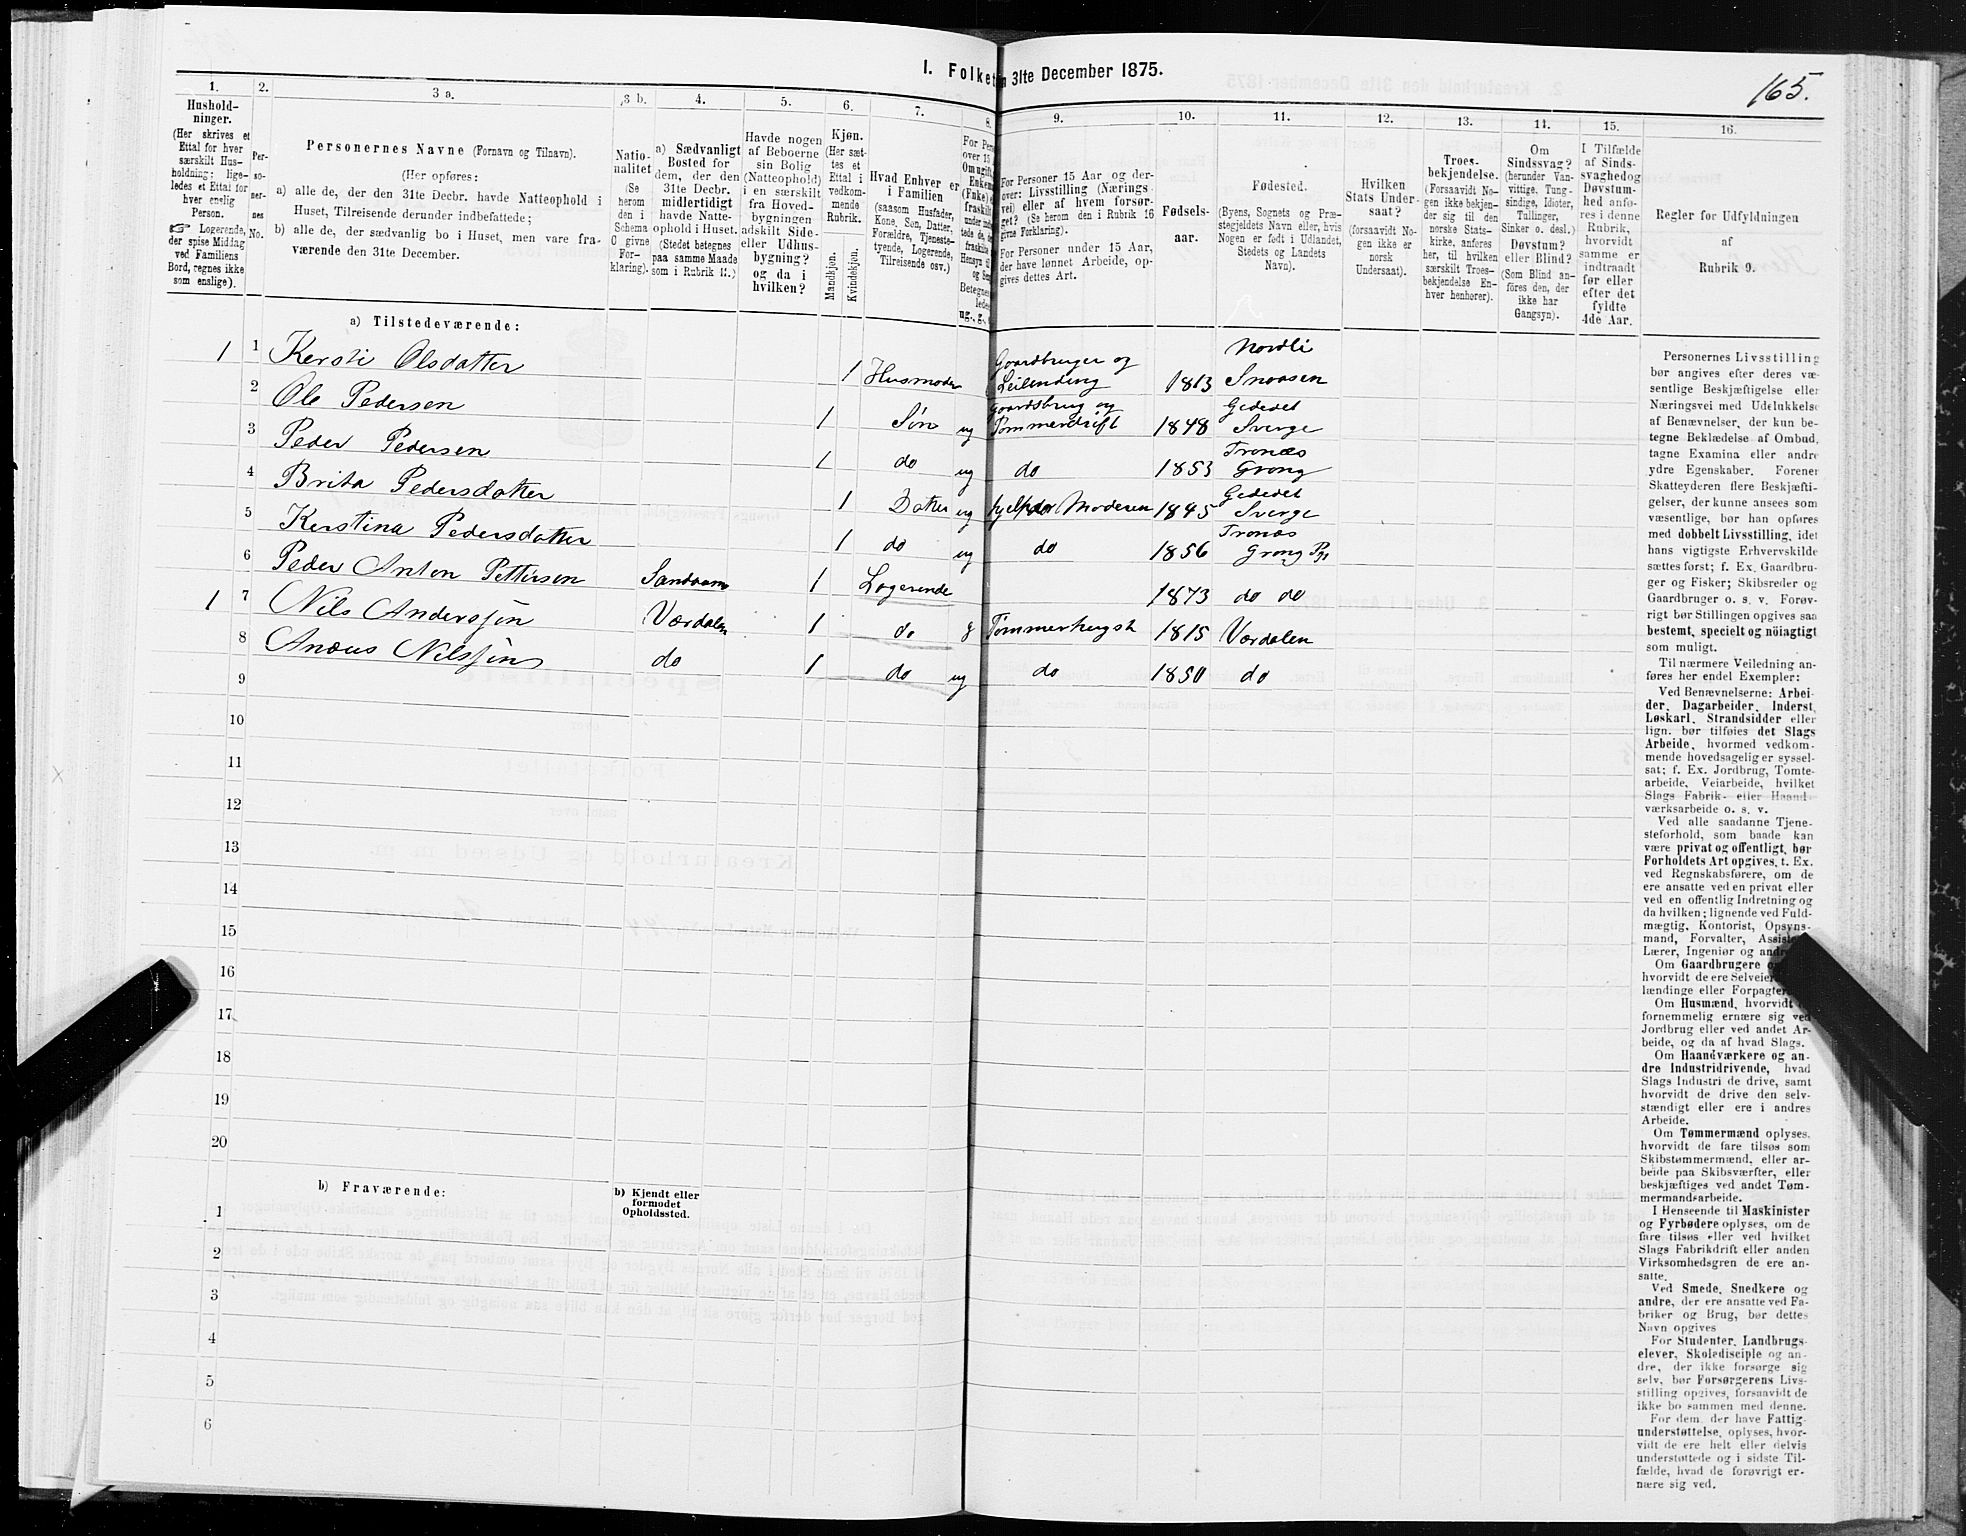 I. Folket
n 31te December 1875.
165.
1.
Hushold-
ninger.
(Her skrives et
Ettal for hver
særskilt Hus-
holdning; lige-
ledes et Ettal for
hver enslig
Person.
Logerende,
der spise Middag
ved Familiens
Bord, regnes ikke
som enslige).
2.
Per-
so-
ner-
nes
No.
3 a.
Personernes Navne (Fornavn og Tilnavn).
(Her opføres:
a) alle de, der den 31te Decbr. havde Natteophold i
Huset, Tilreisende derunder indbefattede;
b) alle de, der sædvanlig bo i Huset, men vare fra-
værende den 31te December.
3 b.
Natio-
nalitet
(Se
herom
den i
Schema
O givne
For-
klaring).
4.
a) Sædvanligt
Bosted for
dem, der den
31te Decbr.
midlertidigt
havde Natte-
ophold i Huset.
(Stedet betegnes
paa samme Maade
som i Rubrik 11.)
5.
Havde nogen
af Beboerne
sin Bolig
(Natteophold)
i en særskilt
fra Hoved-
bygningen
adskilt Side-
eller Udhus-
bygning?
og da i
hvilken?
6.
Kjøn.
(Her sæt-
tes et
Ettal i
vedkom-
mende
Rubrik.
Mandkjøn.
Kvindekjøn.
7.
Hvad Enhver er
i Familien
(saasom Husfader,
Kone, Søn, Datter,
Forældre, Tjeneste-
tyende, Logerende,
Tilreisende osv.)
8.
For Pers
over 15
Om ugift,
Enkem
(Enke)
fraskilt
Betegnes
ledes
ug., g.,
9.
For Personer 15 Aar og der-
over: Livsstilling (Nærings-
vei) eller af hvem forsør-
get? (Se herom den i Rubrik 16
givne Forklaring).
For Personer under 15 Aar,
der have lønnet Arbeide, op-
gives dettes Art.
10.
Fødsels-
aar.
11.
Fødested.
(Byens, Sognets og Præ-
stegjeldets Navn eller, hvis
Nogen er født i Udlandet,
Stedets og Landets
Navn).
12.
Hvilken
Stats Under-
saat?
(forsaavidt No-
gen ikke er
norsk
Undersaat).
13.
Troes-
bekjendelse.
(Forsaavidt No-
gen ikke bekjen-
der sig til den
norske Stats-
kirke, anføres
her, til hvilken
særskilt Troes-
bekjendelse En-
hver henhører).
14.
Om
Sindssvag?
(herunder Van-
vittige, Tung-
sindige, Idioter,
Tullinger,
Sinker o. desl.)
Døvstum?
eller Blind?
(Som Blind an-
føres den, der
ikke har
Gangsyn).
15.
I Tilfælde
af Sinds-
svaghedog
Døvstum-
hed anfø-
res i denne
Rubrik,
hvorvidt
samme er
indtraadt
før eller
efter det
fyldte
4de Aar.
16.
Regler for Udfyldningen
af
Rubrik 9.
a) Tilstedeværende:
1 1 Kersti Olsdatter 1 Husmoder Gaardbruger og Leilending 1813 Nordli Snaasen
2 Ole Pedersen 1 Søn ug Gaardsbrug og Tømmerdrift 1848 Gededet Sverge
3 Peder Pedersen 1 do ug do 1853 Tronæs Grong
4 Brita Pedersdatter 1 Datter ug hjelper Moderen 1845 Gededet Sverge
5 Kerstina Pedersdatter 1 do ug do 1856 Tronæs Grong Pg
6 Peder Anton Pettersen 1 Logerende 1873 do do
1 7 Nils Andersjøn Værdalen 1 do g Tømmerhugst 1815 Værdalen
8 Nilsjøn do 1 do ug do 1850 do
9
10
11
12
13
14
15
16
17
18
19
20
b) Fraværende:
b) Kjendt eller
formodet
Opholdssted.
1
2
3
4
5
6
Personernes Livsstilling
bør angives efter deres væ-
sentlige Beskjæftigelse eller
Næringsvei med Udelukkelse
af Benævnelser, der kun be-
tegne Beklædelse af Ombud,
tagne Examina eller andre
ydre Egenskaber. Forener
Skatteyderen flere Beskjæfti-
gelser, der kunne ansees som
væsentlige, bør han opføres
med dobbelt Livsstilling, idet
hans vigtigste Erhvervskilde
sættes først; f. Ex. Gaardbru-
ger og Fisker; Skibsreder og
Gaardbruger o. s. v. Forøv-
rigt bør Stillingen opgives saa
bestemt, specielt og nöiagtigt
som muligt.
Til nærmere Veiledning an-
føres her endel Exempler:
Ved Benævnelserne: Arbei-
der, Dagarbeider, Inderst,
Løskarl, Strandsidder eller
lign. bør tilføies det Slags
Arbeide, hvormed vedkom-
mende hovedsagelig er syssel-
sat; f. Ex. Jordbrug, Tomte-
arbeide, Veiarbeide, hvilket
Slags Fabrik- eller Haand-
værksarbeide o. s. v.
Ved alle saadanne Tjene-
steforhold, som baade kan
være privat og offentligt, bør
Forholdets Art opgives, t. Ex.
ved Regnskabsførere, om de
ere ansatte ved en privat eller
ved en offentlig Indretning og
da hvilken; lignende ved Fuld-
mægtig, Kontorist, Opsyns-
mand, Forvalter, Assistent
Lærer, Ingeniør og andre.
Om Gaardbrugere
hvorvidt de ere Selveiere,
lændinge eller Forpagtere
Om Husmænd, hvorvidt
fornemmelig ernære sig ved
Jordbrug eller ved andet Ar-
beide, og da af hvad Slags.
Om Haandværkere og an-
dre Industridrivende, hvad
Slags Industri de drive, samt
hvorvidt de drive den selv-
stændigt eller ere i andres
Arbeide.
Om Tømmermænd oplyses,
hvorvidt de fare tilsøs som
Skibstømmermænd, eller ar-
beide paa Skibsværfter, eller
beskjæftiges ved andet Tøm-
mermandsarbeide.
I Henseende til Maskinister
og Fyrbødere oplyses, om de
fare tilsøs eller ved hvilket
Slags Fabrikdrift eller anden
Virksomhedsgren de ere an-
satte.
Ved Smede, Snedkere og
andre, der ere ansatte ved Fa-
briker og Brug, bør dettes
Navn opgives
For Studenter, Landbrugs-
elever, Skoledisciple og an-
dre, der ikke forsørge sig
selv, bør Forsørgerens Livs-
stilling opgives, forsaavidt de
ikke bo sammen med denne.
For dem, der have Fattig-
understøttelse, oplyses, hvor-
vidt de ere helt eller delvis
understøttede og i sidste Til-
fælde, hvad de forøvrigt er-
nære sig ved.